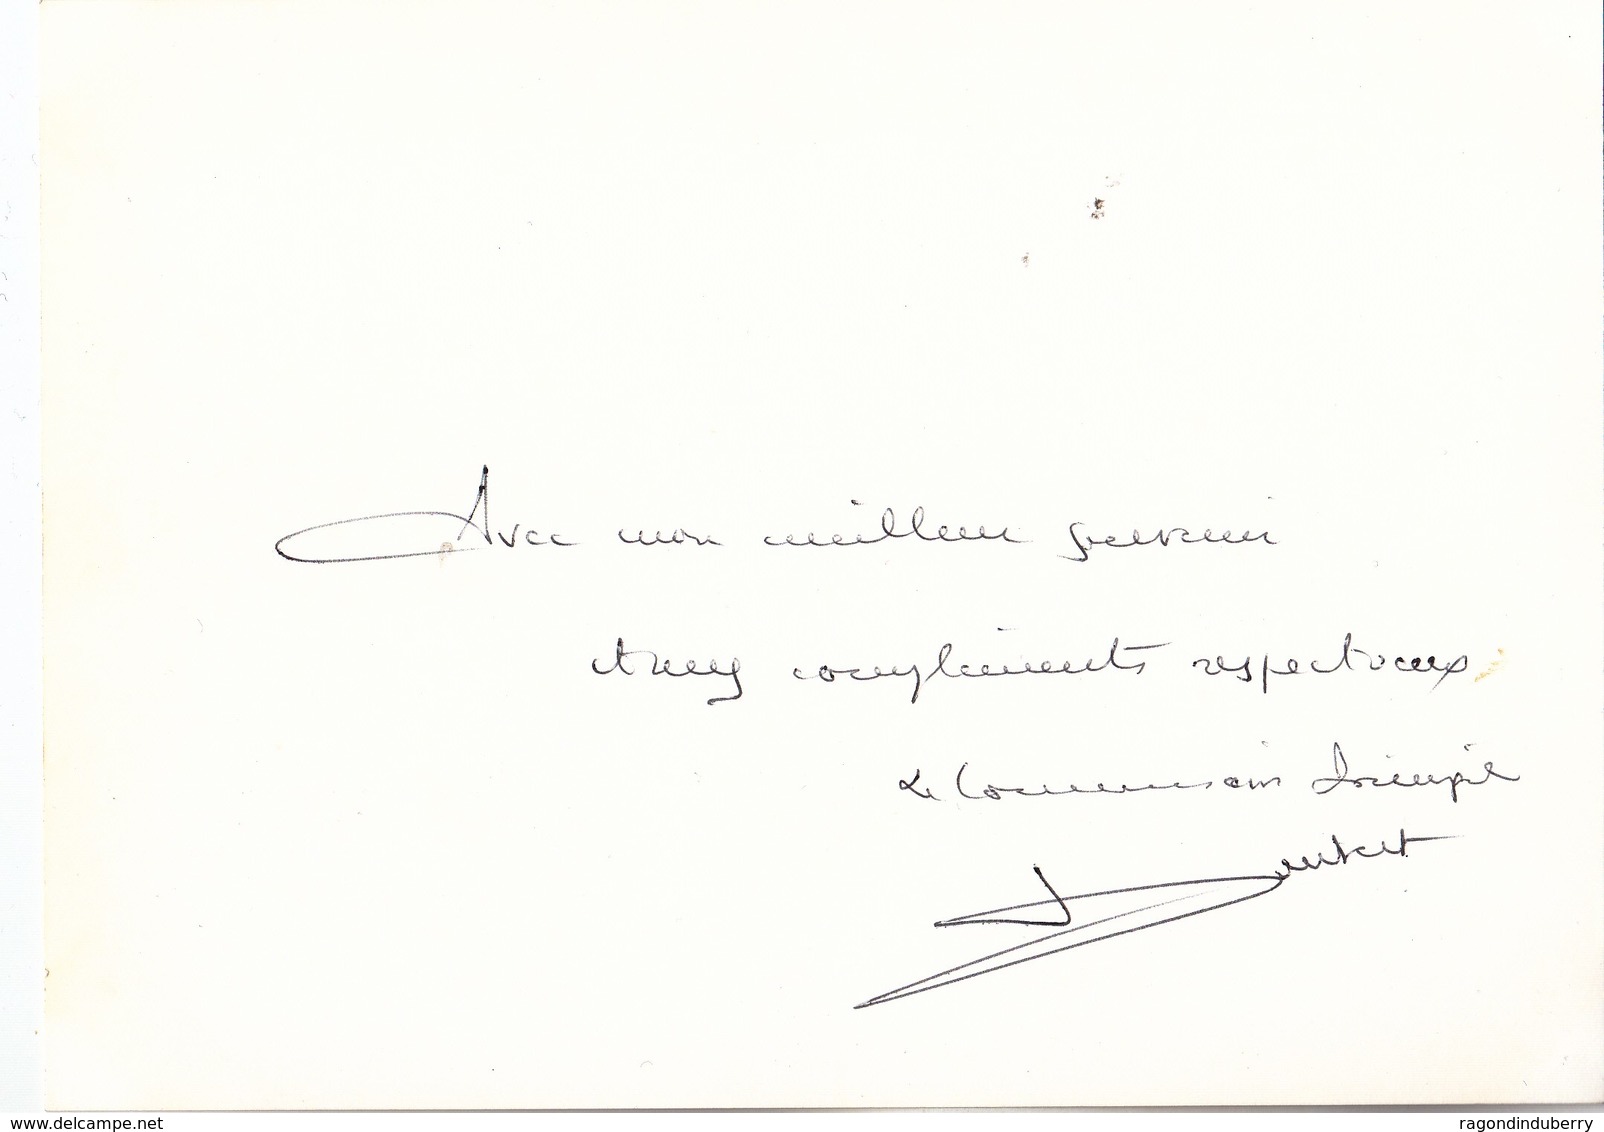 Avec mon meilleur souvenir
et mes compliments respectueux
Le Commissaire Principal
www.delcampe.net
ragondinduberry